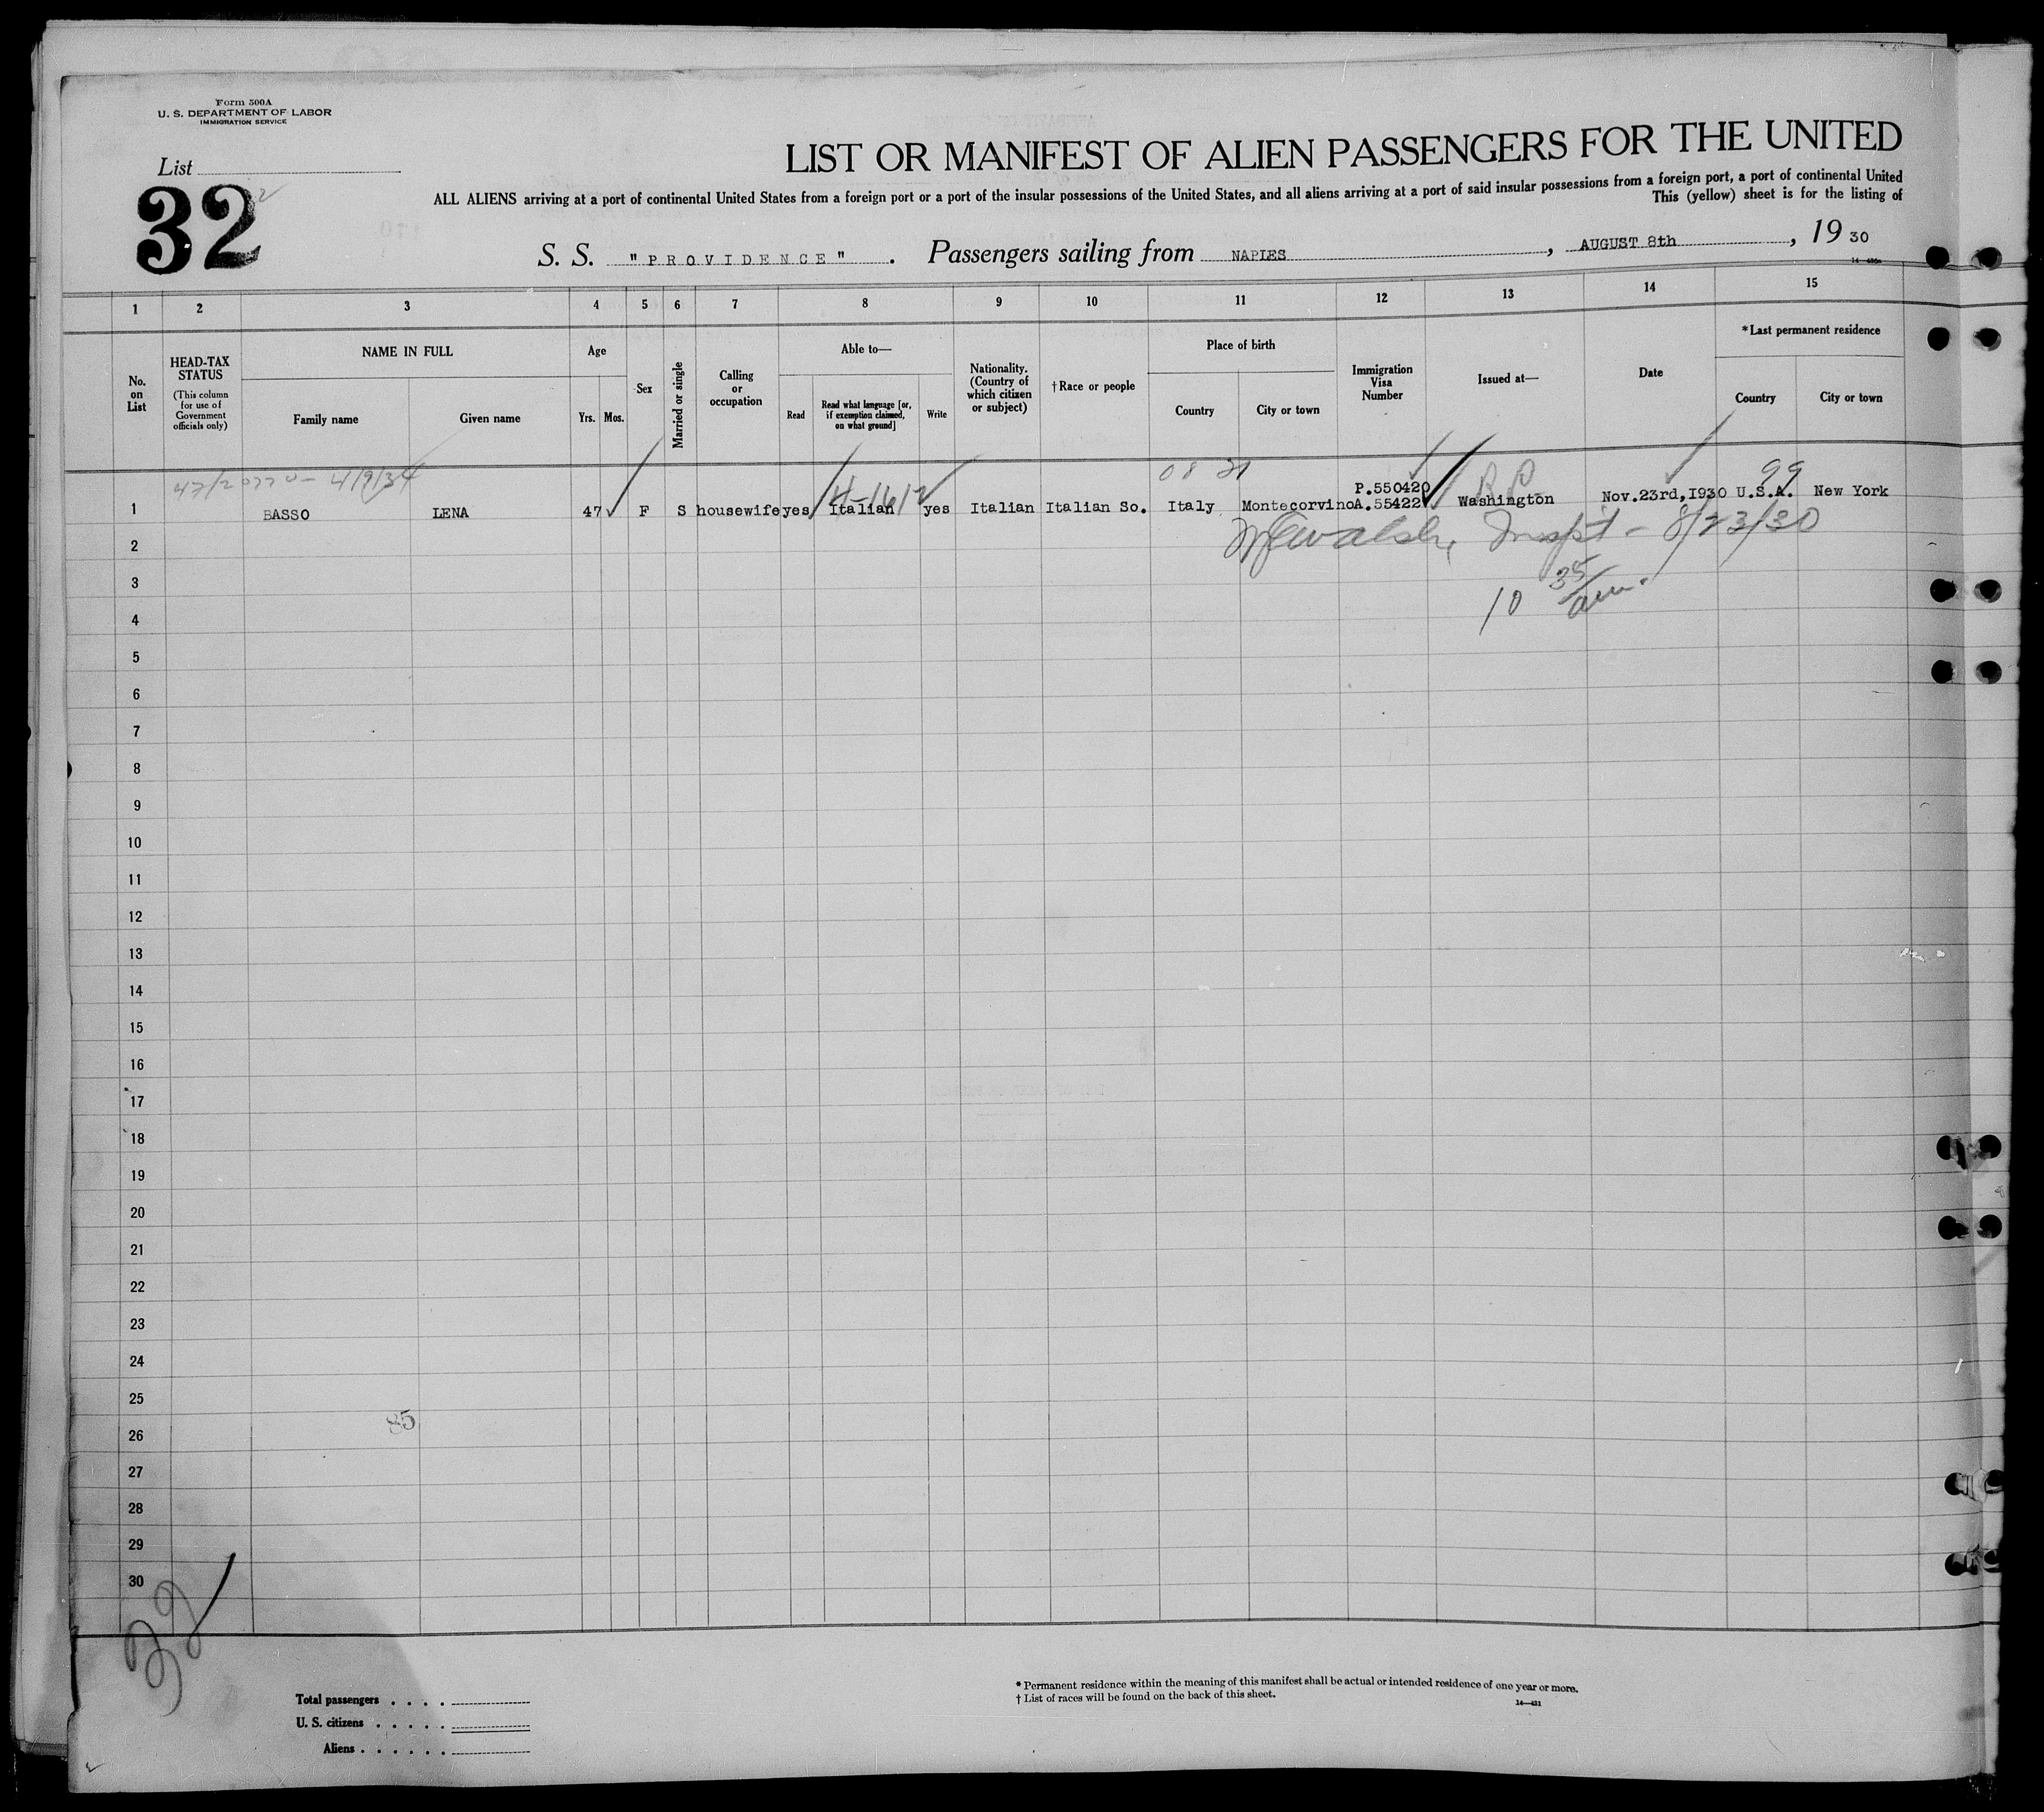 Form 500A
U. S. DEPARTMENT OF LABOR
IMMIGRATION SERVICE
List
32
LIST OR MANIFEST OF ALIEN PASSENGERS FOR THE UNITED
ALL ALIENS arriving at a port of continental United States from a foreign port or a port of the insular possessions of the United States, and all aliens arriving at a port of said insular possessions from a foreign port, a port of continental United
This (yellow) sheet is for the listing of
S. S. "PROVIDENCE" . Passengers sailing from NAPLES , AUGUST 8th , 19 30
1 2 3 4 5 6 7 8 9 10 11 12 13 14 15
No. on List
HEAD-TAX STATUS (This column for use of Government officials only)
NAME IN FULL
Family name Given name
Age
Yrs. Mos.
Sex
Married or single
Calling or occupation
Able to—
Read Read what language [or, if exemption claimed, on what ground] Write
Nationality. (Country of which citizen or subject)
†Race or people
Place of birth
Country City or town
Immigration Visa Number
Issued at—
Date
*Last permanent residence
Country City or town
4/9/34
99
P.550420
1 BASSO LENA 47 F S housewife yes Italian yes Italian Italian So. Italy Montecorvino A.55422 Washington Nov.23rd,1930 U.S.A. New York
2
Walsh, Inspt - 8/23/30
3
10 35 am.
4
5
6
7
8
9
10
11
12
13
14
15
16
17
18
19
20
21
22
23
24
25
85
26
27
28
29
30
Total passengers . . . .
U. S. citizens . . . . .
Aliens . . . . . .
* Permanent residence within the meaning of this manifest shall be actual or intended residence of one year or more.
† List of races will be found on the back of this sheet.
14—431